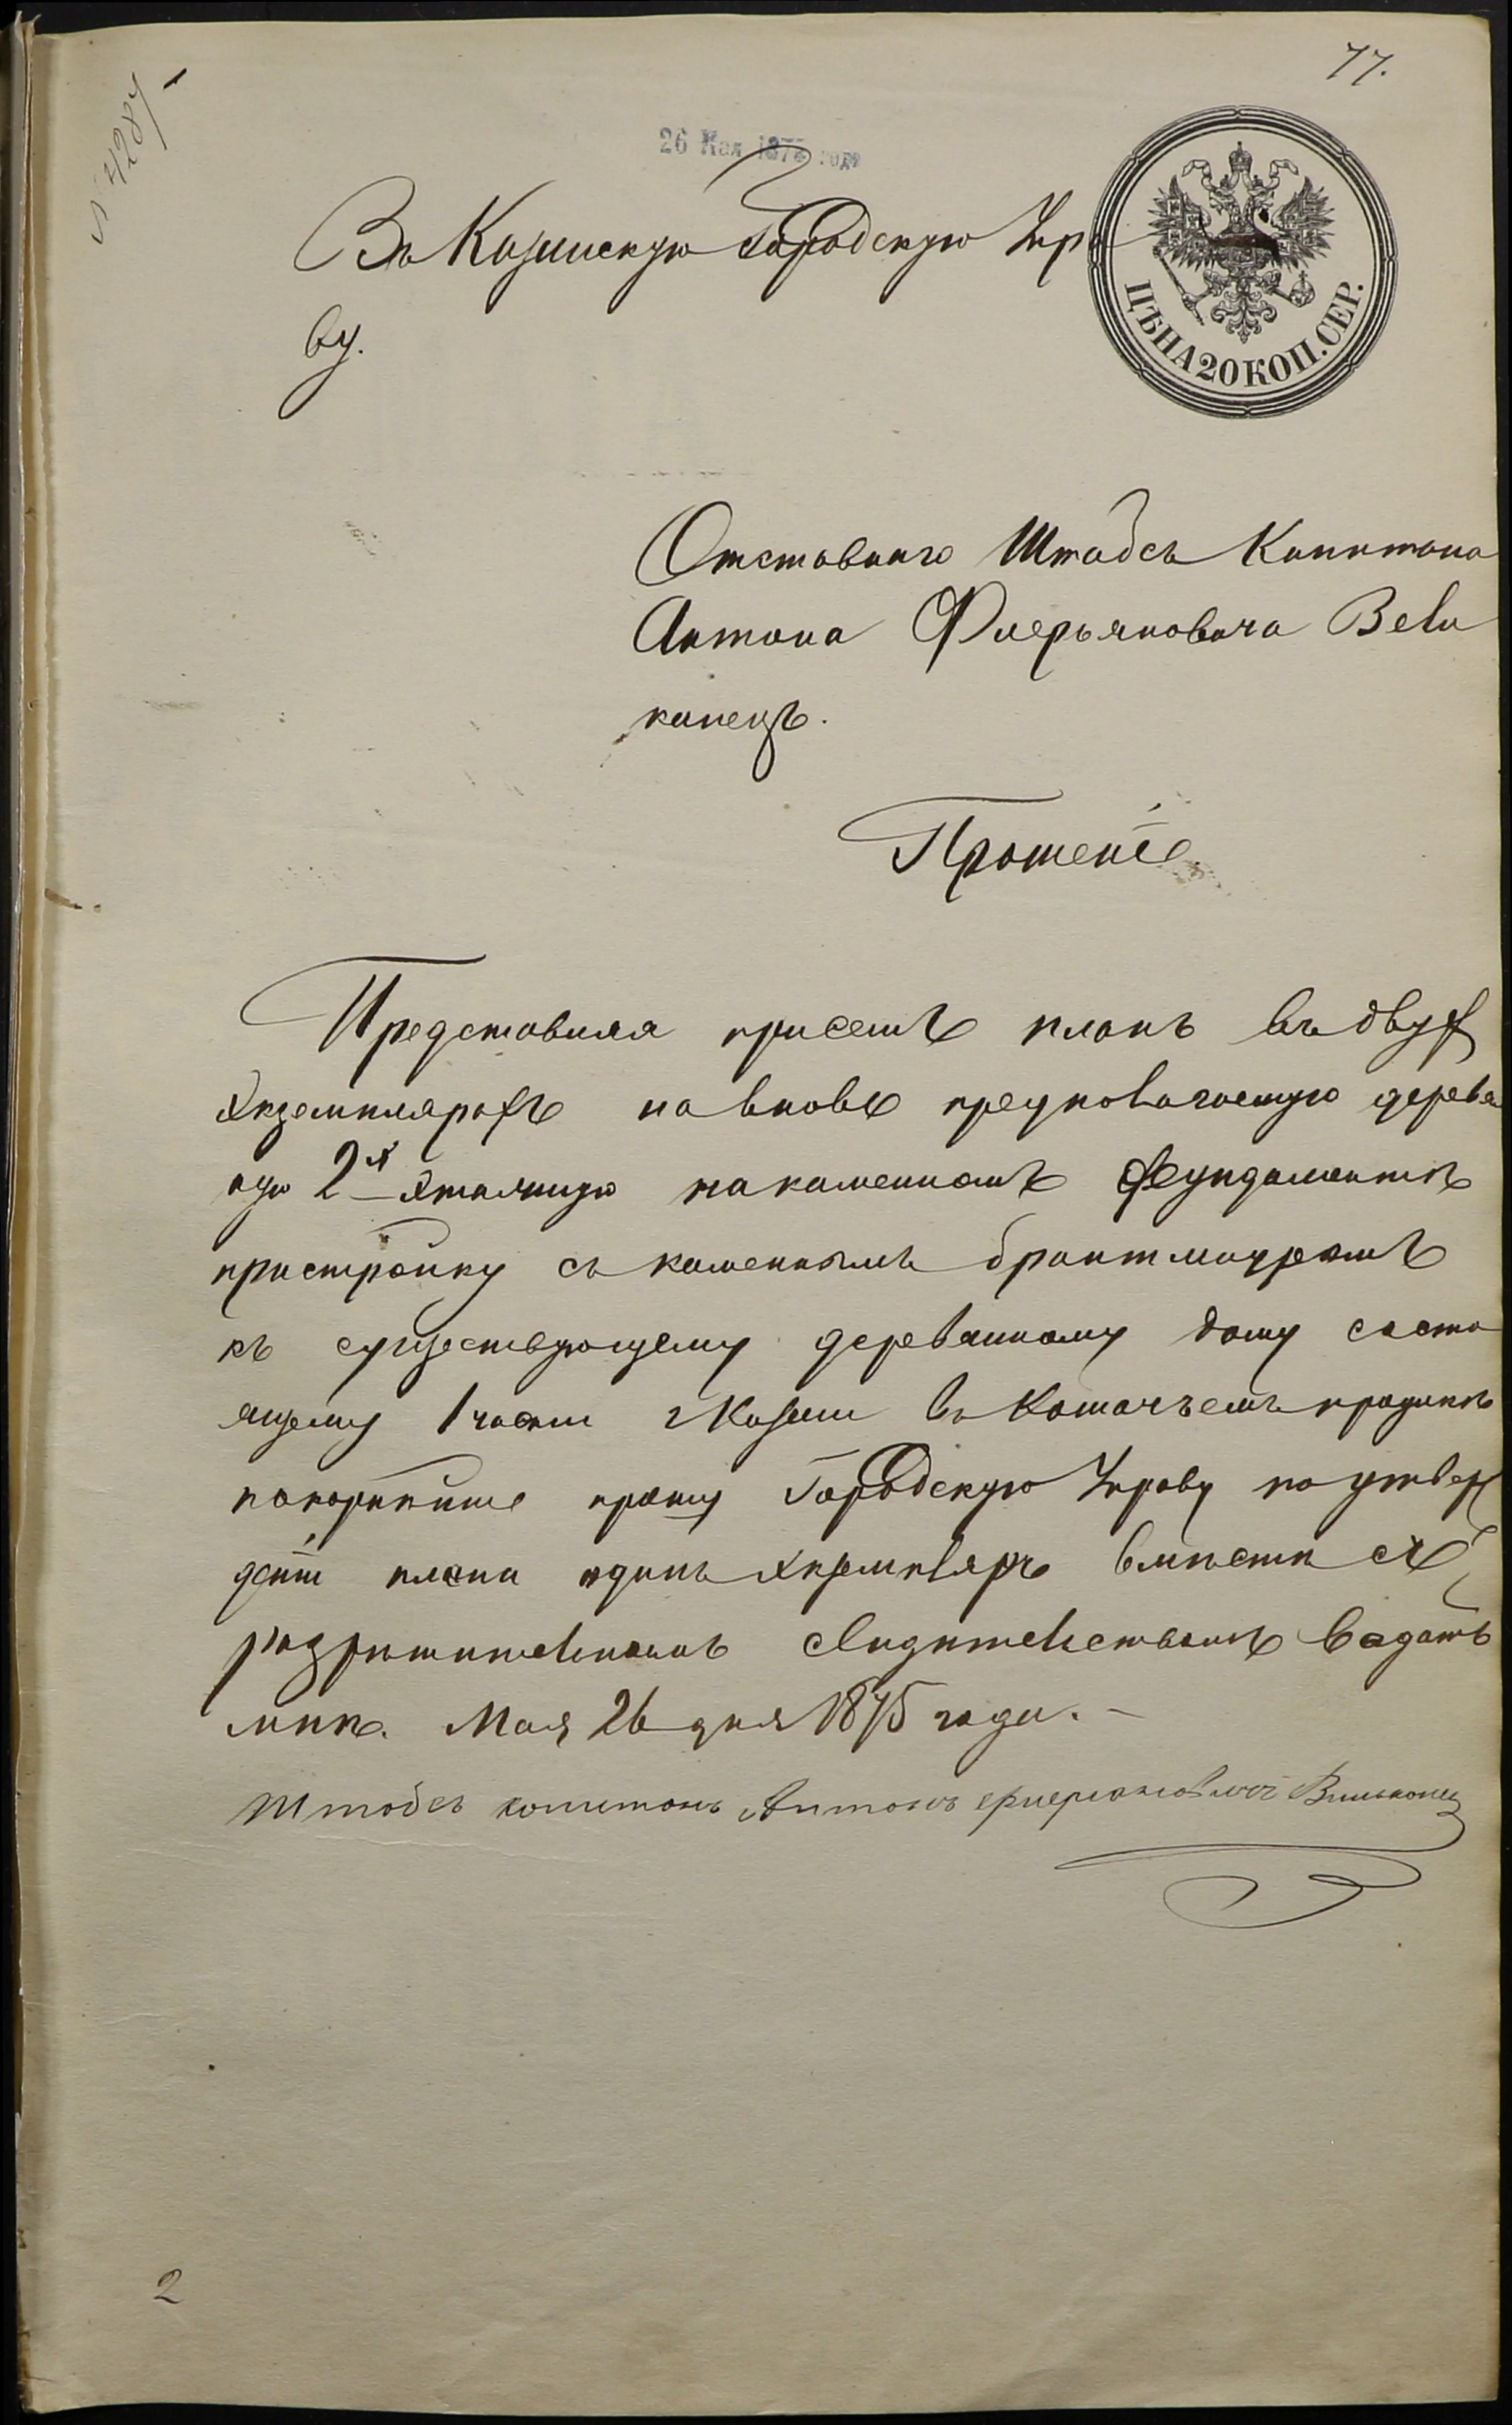 77.
№ 4284
26 Мая 1875 года
Въ Казанскую Городскую Упра
ву.
ЦѢНА 20 КОП. СЕР.
Отставнаго Штабсъ Капитана
Антона Флерьяновича Вели
канецъ.
Прошеніе.
Представляя присемъ планъ въ двух
экземплярахъ на вновь предполагаемую деревя
ную 2х этажную на каменномъ фундаментѣ
пристройку съ каменнымъ брантмауромъ
къ существующему деревянному дому состо
ящему 1 части г Казани въ Кошачьемъ
покорнѣйше прошу Городскую Управу по утверж
деніи плана одинъ экземпляръ вмѣстѣ съ
разрѣшительнымъ свидѣтельствомъ выдать
мнѣ. Мая 26 дня 1875 года.
Штабсъ капитанъ Антонъ
2